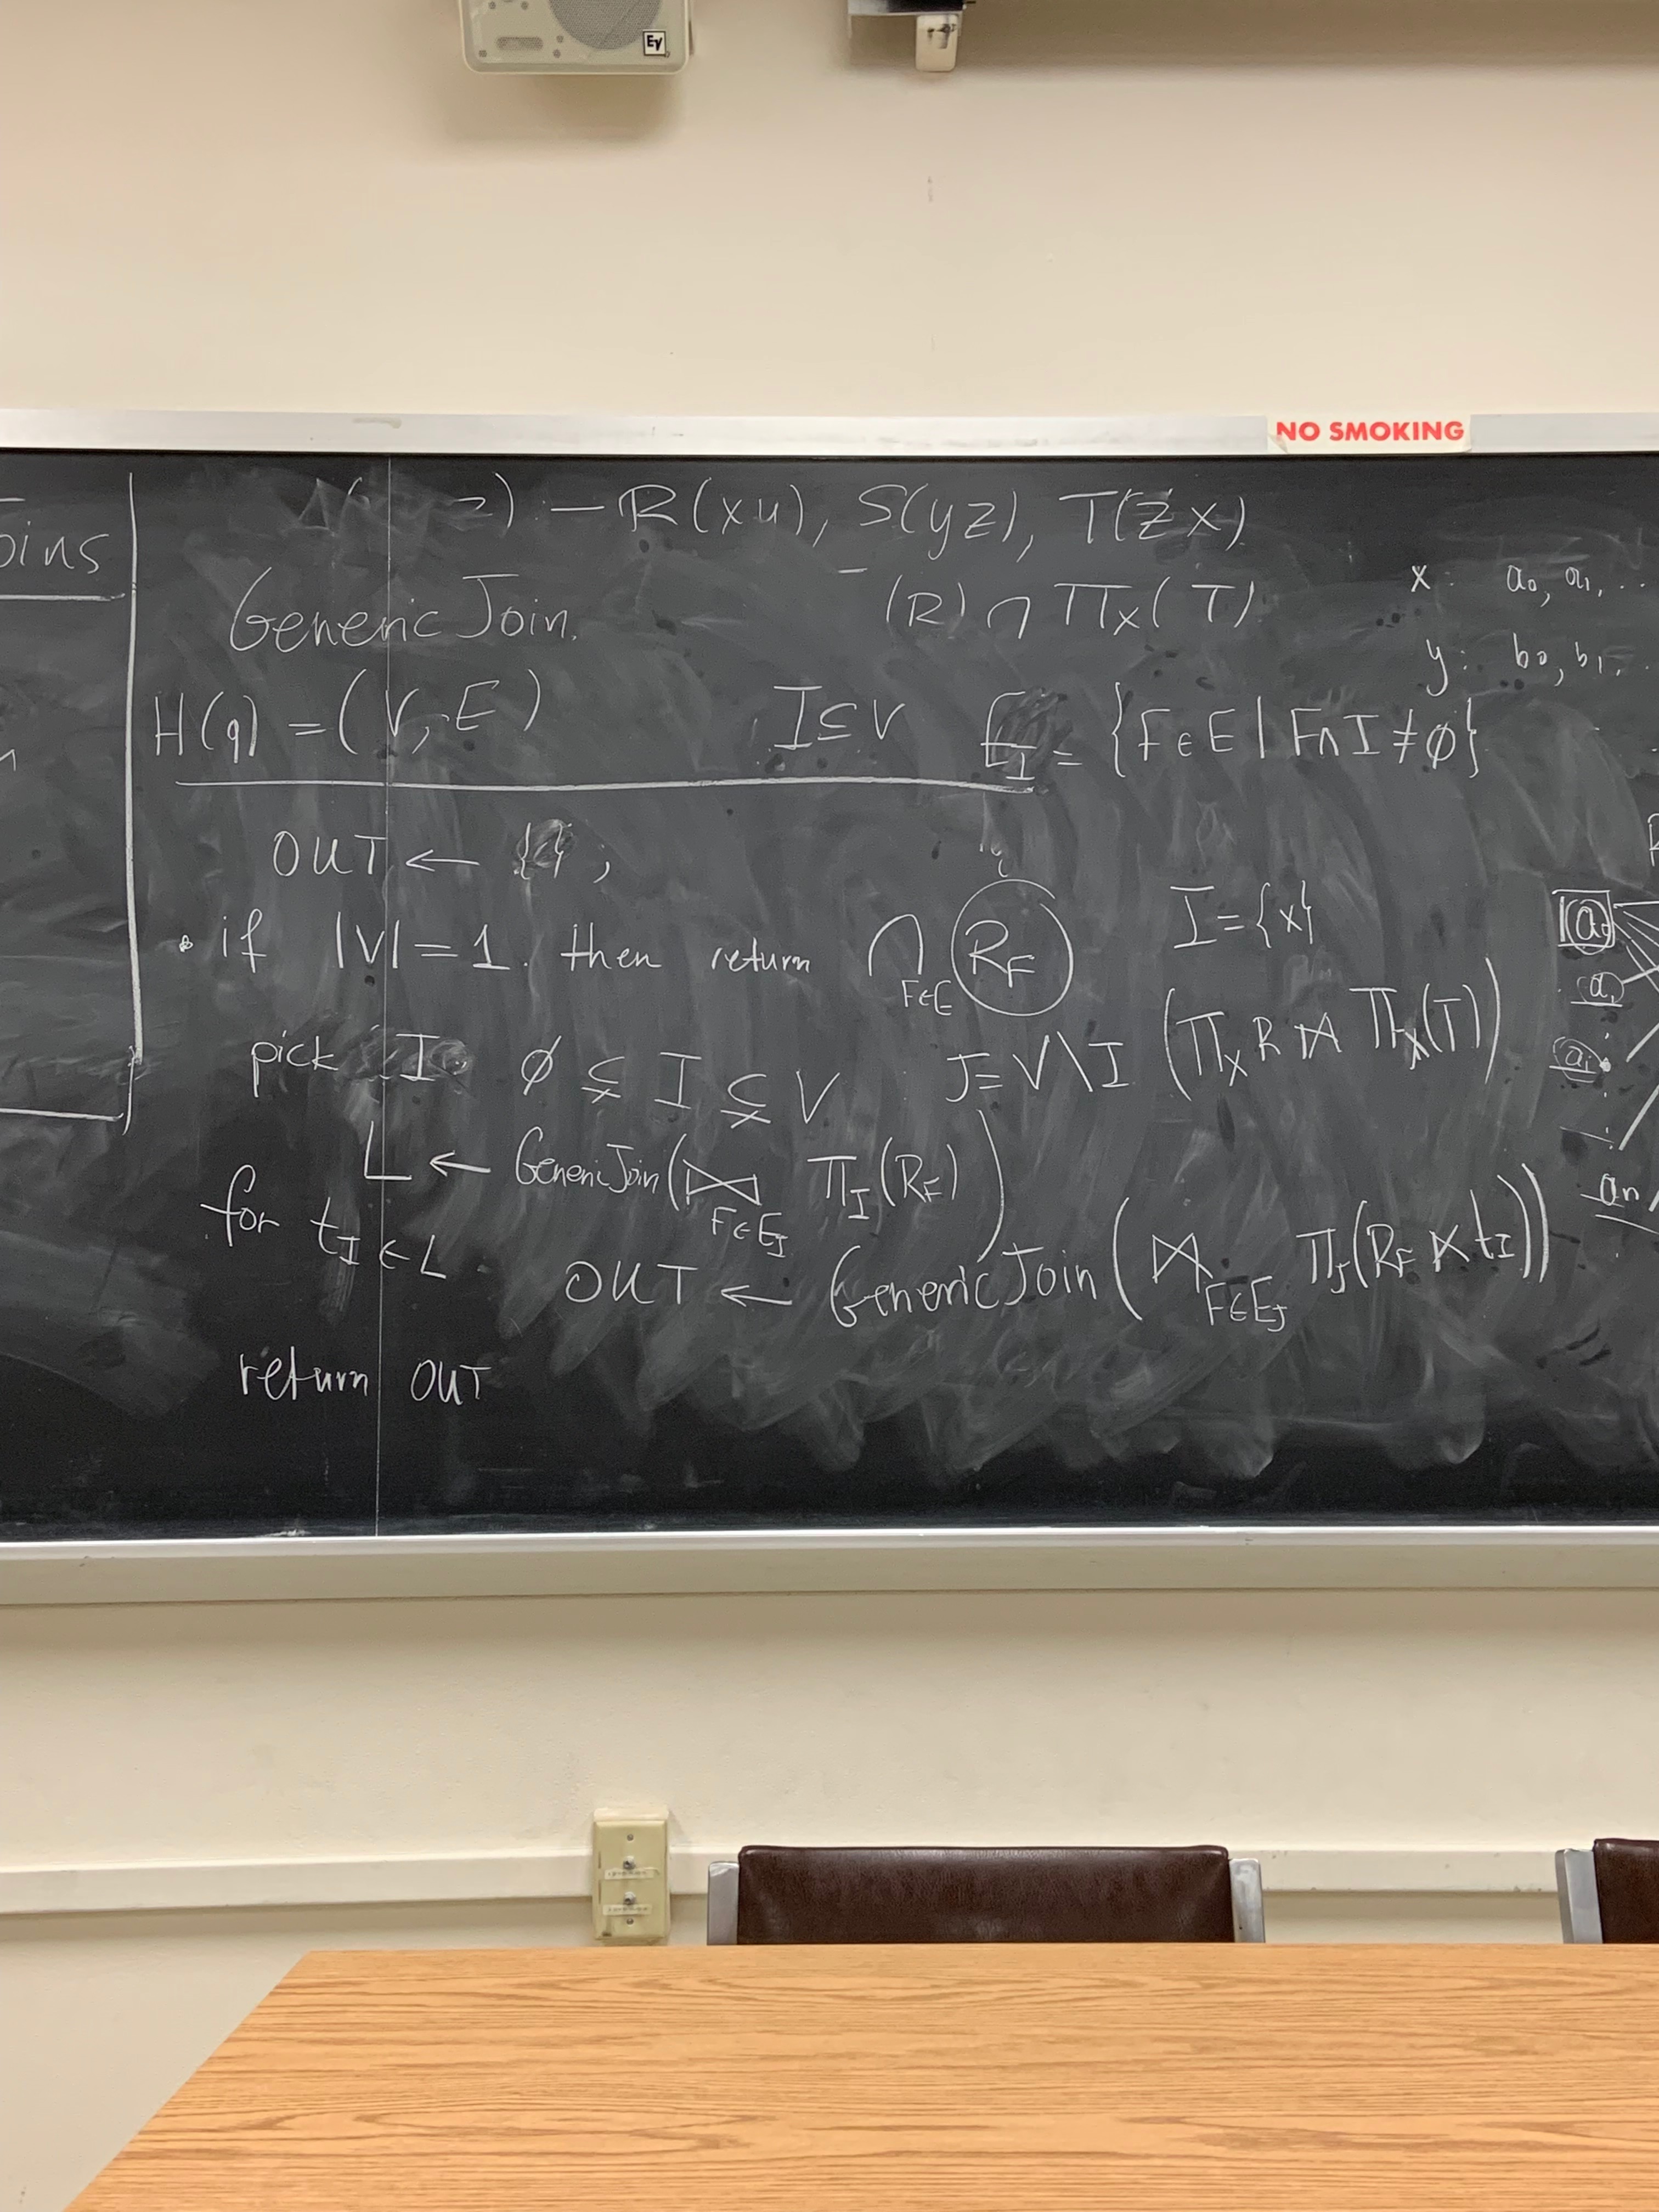 EV
NO SMOKING
oins
z) :— R(xy), S(yz), T(zx)
Generic Join.
(R) ∩ Π_X(T)
x: a₀, a₁, ..
y: b₀, b₁, .
H(q) = (V, E)
I ⊆ V
E_I = {F ∈ E | F ∩ I ≠ ∅}
OUT ← { },
• if |V| = 1. then return ⋂_{F∈E} R_F
I = {x}
pick I ∅ ⊊ I ⊊ V
J = V \ I
(Π_X R ⋈ Π_X(T))
L ← GenericJoin(⋈_{F∈E_I} Π_I(R_F))
for t_I ∈ L
OUT ← GenericJoin(⋈_{F∈E_J} Π_J(R_F ⋉ t_I))
return OUT
R
a₀
a₁
a_i
a_n